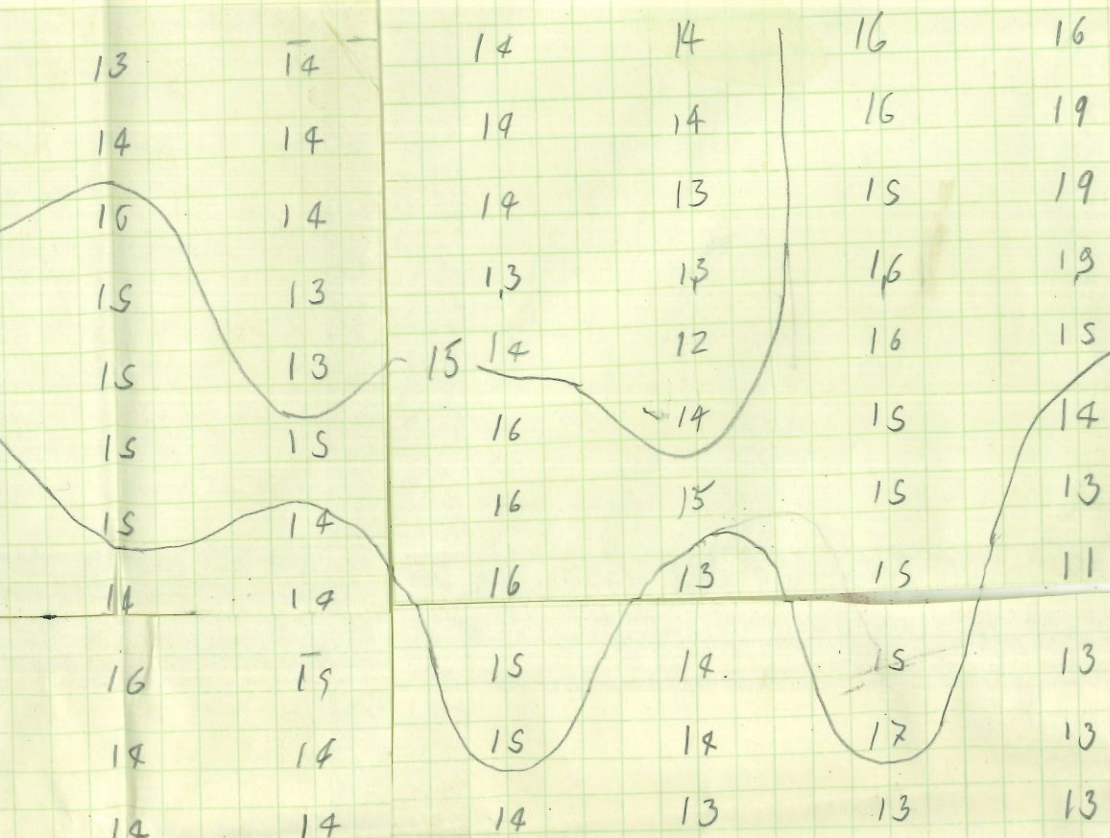 13 14 14 14 16 16
14 14 19 14 16 19
16 14 14 13 15 19
15 13 13 13 16 13
15 13 15 14 12 16 15
15 15 16 14 15 14
15 14 16 15 15 13
14 14 16 13 15 11
16 15 15 14 15 13
14 14 15 14 17 13
14 14 14 13 13 13